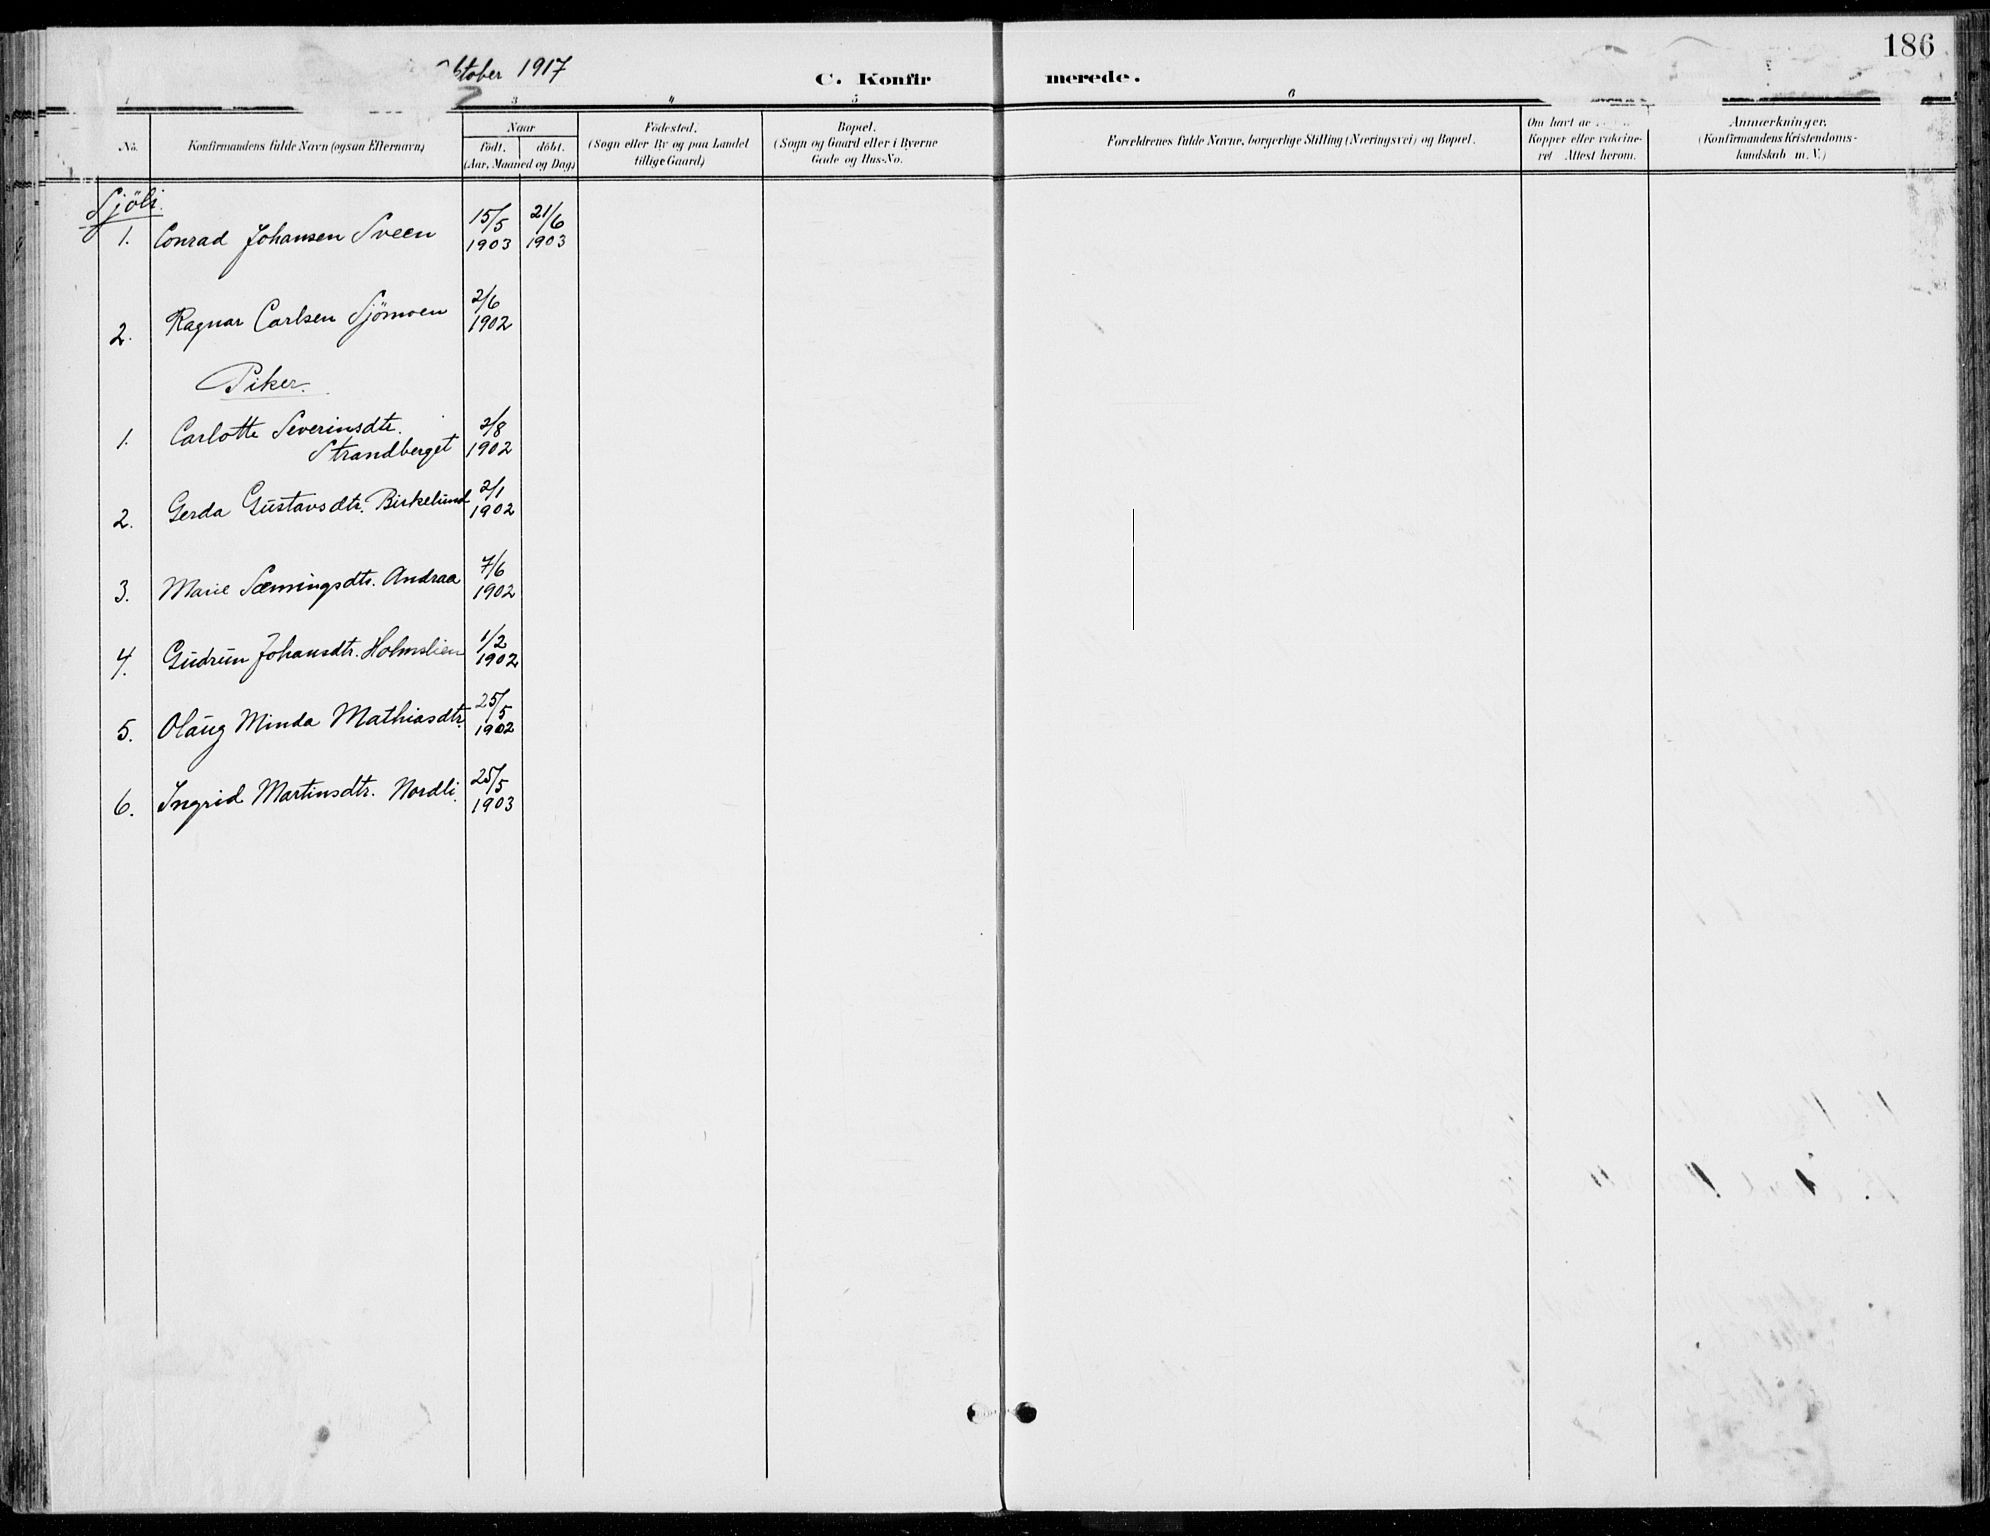 186
ktober 1917
C. Konfir merede.
3 4 5 6
No. Konfirmandens fulde Navn (ogsaa Efternavn) Naar Födested. Bopæl. Forældrenes fulde Navne, borgerlige Stilling (Næringsvei) og Bopæl. Om havt de Anmærkninger.
födt. döbt. (Sogn eller By og paa Landet (Sogn og Gaard eller i Byerne Kopper eller vakcine- (Konfirmandens Kristendoms-
(Aar, Maaned og Dag) tillige Gaard) Gade og Hus-No. ret Attest herom. kundskab m. V.)
Sjöli.
1. Conrad Johansen Sveen 15/5 1903 21/6 1903
2. Ragnar Carlsen Sjömoen 2/6 1902
Piker.
1. Carlotte Severinsdtr.
Strandberget 2/8 1902
2. Gerda Gustavsdtr. Birkelund 2/1 1902
3. Marie Sæmingsdtr. Andraa 7/6 1902
4. Gudrun Johansdtr. Holmslien 1/2 1902
5. Olaug Minda Mathiasdtr. 25/5 1902
6. Ingrid Martinsdtr. Nordli. 25/5 1903